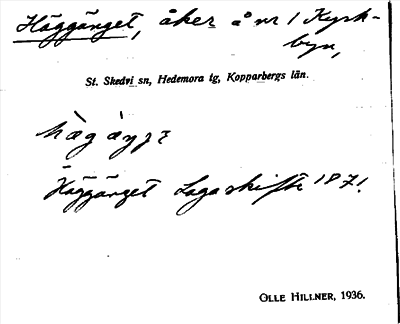 Häggänget, åker å nr 1 Kyrk-
byn,
St. Skedvi sn, Hedemora tg, Kopparbergs län.
Häggänget Lagaskifte 1871.
OLLE HILLNER, 1936.